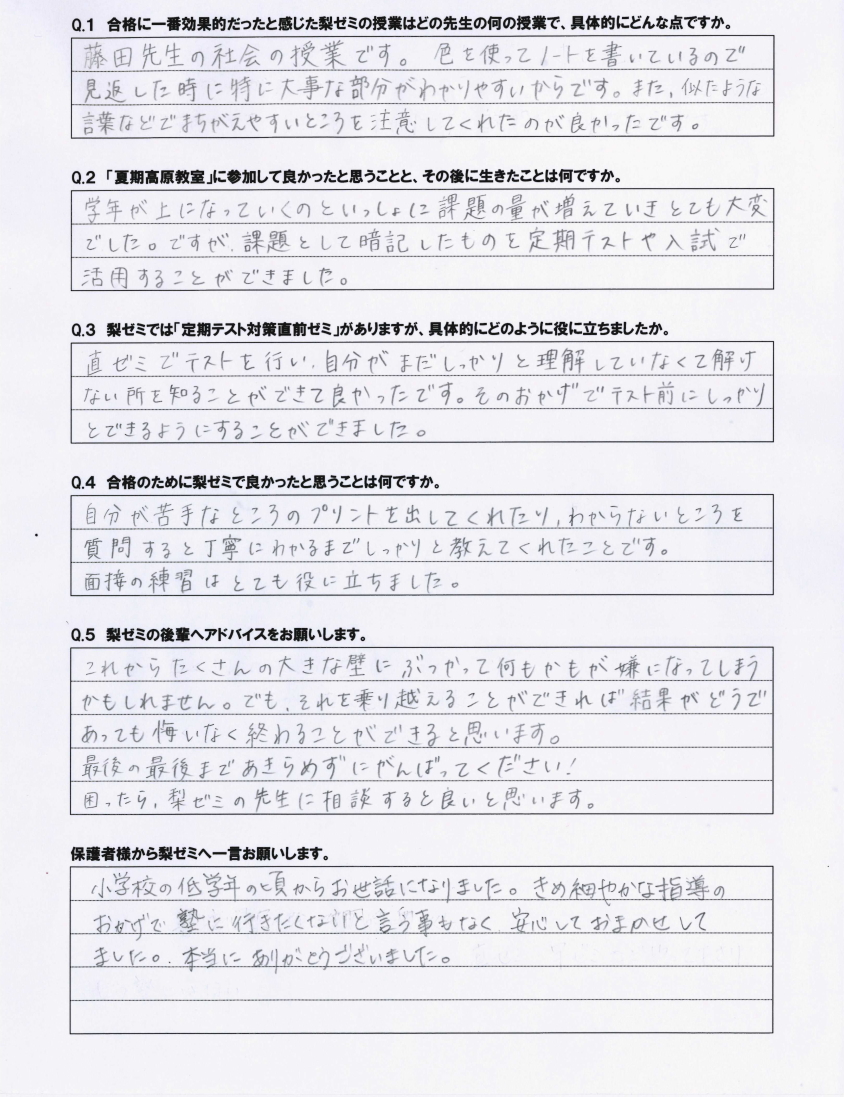 Q.1 合格に一番効果的だったと感じた梨ゼミの授業はどの先生の何の授業で、具体的にどんな点ですか。
藤田先生の社会の授業です。色を使ってノートを書いているので
見返した時に特に大事な部分がわかりやすいからです。また、似たような
言葉などでまちがえやすいところを注意してくれたのが良かったです。
Q.2 「夏期高原教室」に参加して良かったと思うことと、その後に生きたことは何ですか。
学年が上になっていくのといっしょに課題の量が増えていきとても大変
でした。ですが、課題として暗記したものを定期テストや入試で
活用することができました。
Q.3 梨ゼミでは「定期テスト対策直前ゼミ」がありますが、具体的にどのように役に立ちましたか。
直ゼミでテストを行い、自分がまだしっかりと理解していなくて解け
ない所を知ることができて良かったです。そのおかげでテスト前にしっかり
とできるようにすることができました。
Q.4 合格のために梨ゼミで良かったと思うことは何ですか。
自分が苦手なところのプリントを出してくれたり、わからないところを
質問すると丁寧にわかるまでしっかりと教えてくれたことです。
面接の練習はとても役に立ちました。
Q.5 梨ゼミの後輩へアドバイスをお願いします。
これからたくさんの大きな壁にぶつかって何もかもが嫌になってしまう
かもしれません。でも、それを乗り越えることができれば結果がどうで
あっても悔いなく終わることができると思います。
最後の最後まであきらめずにがんばってください!
困ったら、梨ゼミの先生に相談すると良いと思います。
保護者様から梨ゼミへ一言お願いします。
小学校の低学年の頃からお世話になりました。きめ細やかな指導の
おかげで塾に行きたくないと言う事もなく、安心しておまかせして
ました。本当にありがとうございました。